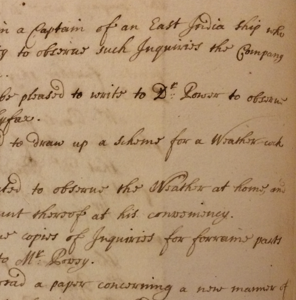 in a Captain of an East India ship who
ty to observe such Inquiries the Company
be pleased to write to Dr. Power to observe
lyfax.
d to draw up a scheme for a Weather-cock
ted to observe the Weather at home, and
unt thereof at his conveniency.
ue copies of Inquiries for forraine parts
to Mr. Povey.
read a paper concerning a new manner of